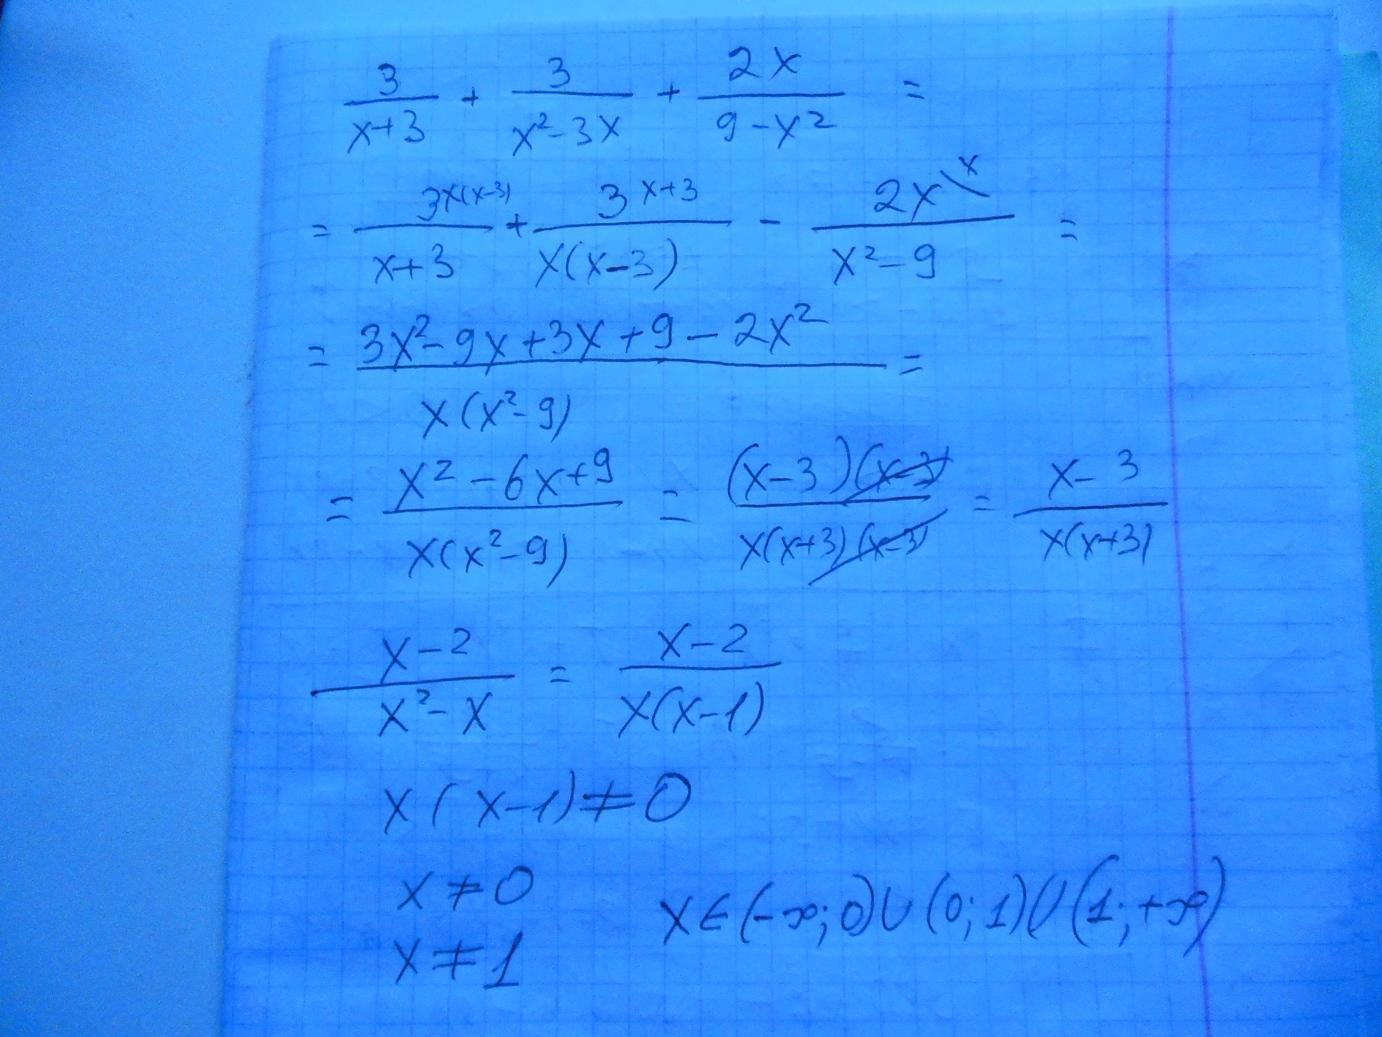 3/(x+3) + 3/(x²-3x) + 2x/(9-x²) =
= 3^{x(x-3)}/(x+3) + 3^{x+3}/(x(x-3)) - 2x^{\x}/(x²-9) =
= (3x²-9x+3x+9-2x²)/(x(x²-9)) =
= (x²-6x+9)/(x(x²-9)) = ((x-3)(x-3))/(x(x+3)(x-3)) = (x-3)/(x(x+3))
(x-2)/(x²-x) = (x-2)/(x(x-1))
x(x-1)≠0
x≠0
x≠1
x∈(-∞;0)∪(0;1)∪(1;+∞)